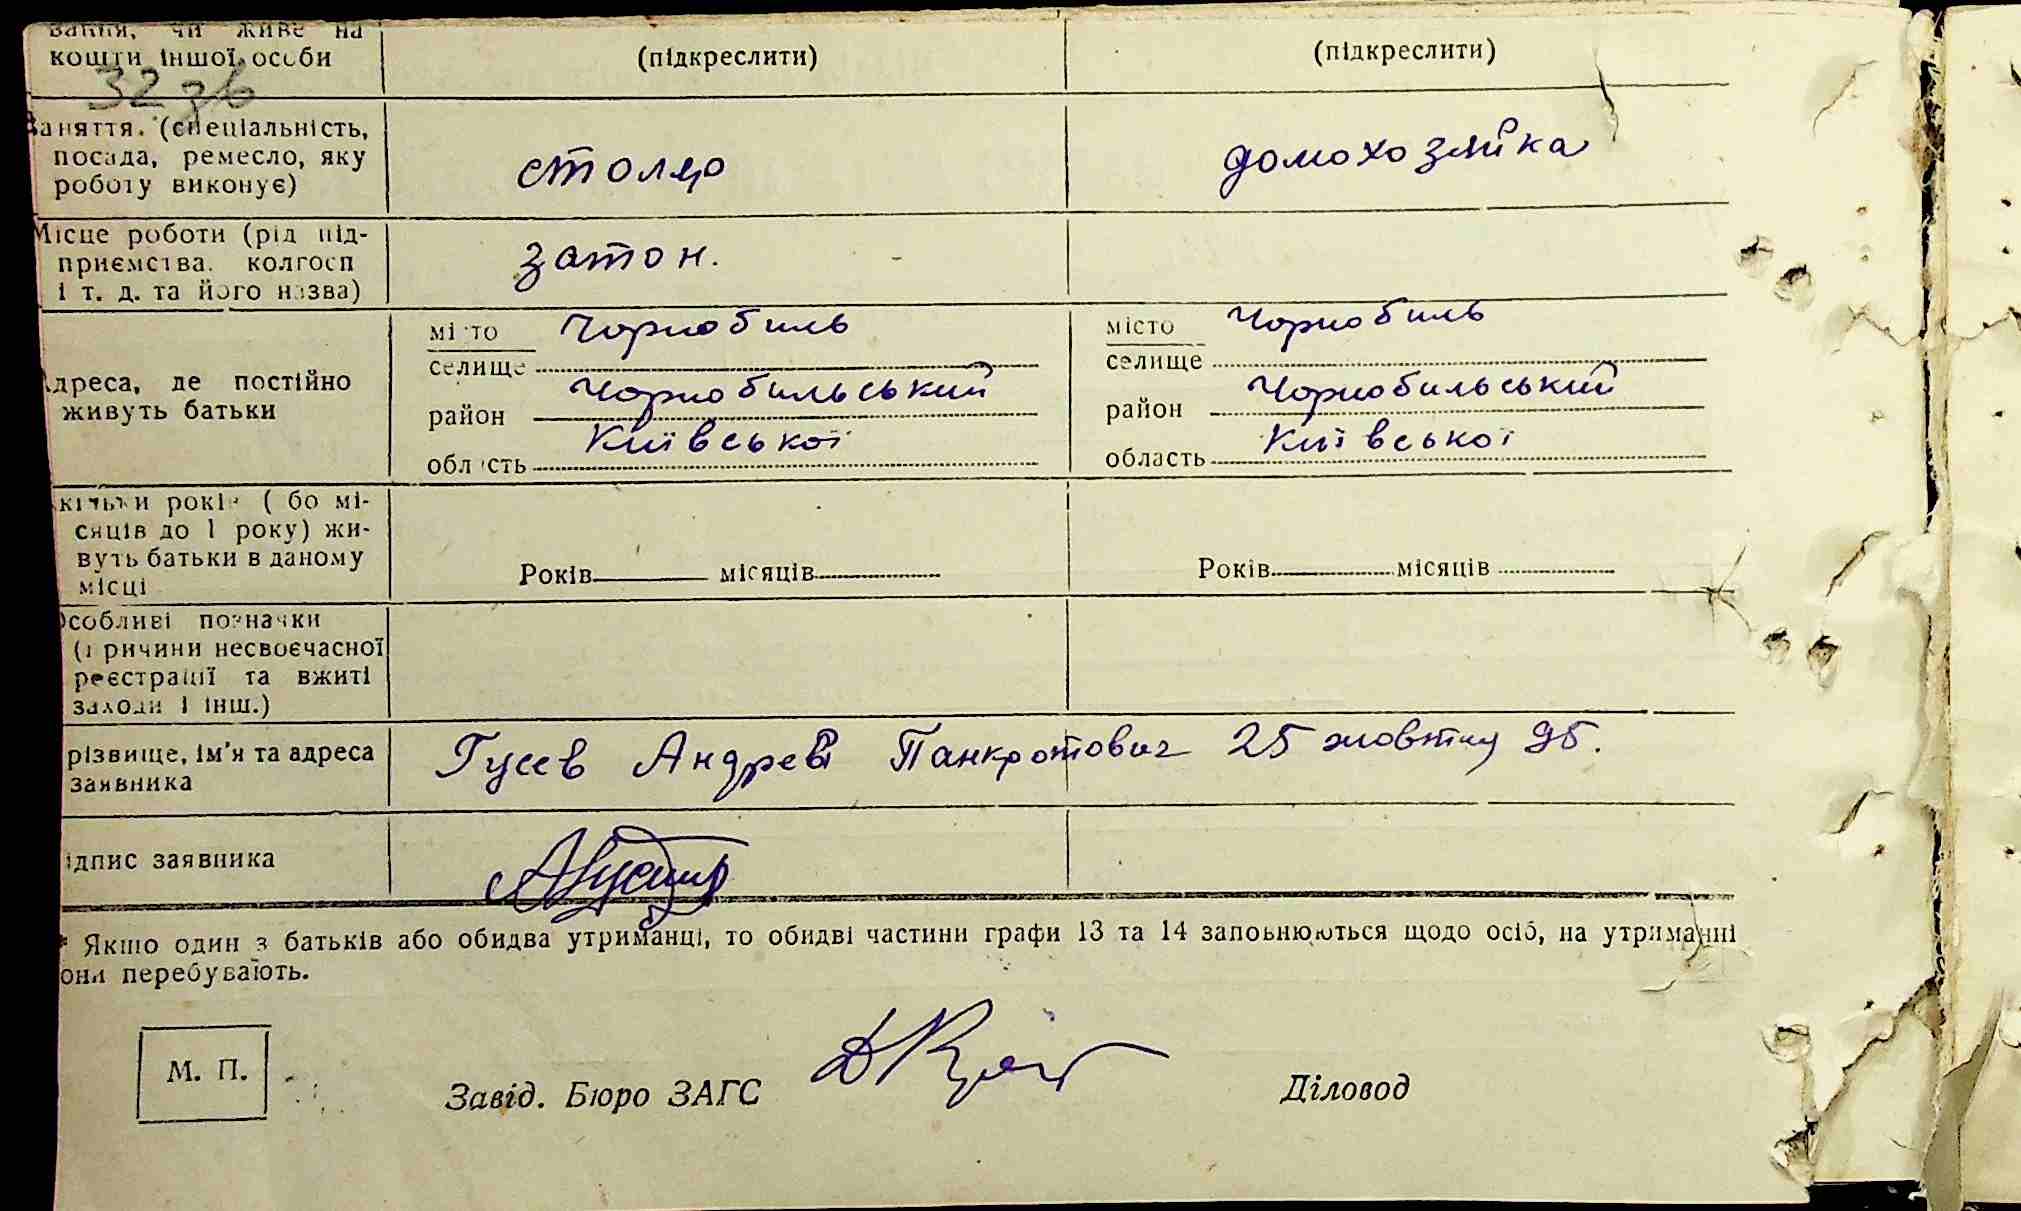 вання, чи живе на
кошти іншої особи
(підкреслити)
(підкреслити)
32 зв
Заняття. (спеціальність,
посада, ремесло, яку
роботу виконує)
столяр
домохозяйка
Місце роботи (рід під-
приємства. колгосп
і т. д. та його назва)
затон.
Адреса, де постійно
живуть батьки
місто Чорнобиль
селище
район Чорнобильський
область Київської
місто Чорнобиль
селище
район Чорнобильський
область Київської
кільки років ( бо мі-
сяців до 1 року) жи-
вуть батьки в даному
місці
Років місяців
Років місяців
Особливі позначки
(причини несвоєчасної
реєстрації та вжиті
заходи і інш.)
різвище, ім'я та адреса
заявника
Гусев Андрей Панкротович 25 жовтня 95.
ідпис заявника
* Якщо один з батьків або обидва утриманці, то обидві частини графи 13 та 14 заповнюються щодо осіб, на утриманні
они перебувають.
М. П.
Завід. Бюро ЗАГС
Діловод